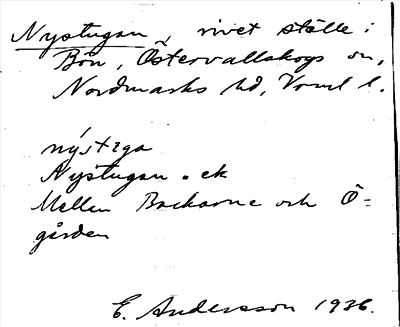 Nystugan, rivet ställe i
Bön, Östervallskogs sn,
Nordmarks hd, Vrml l.
Nystugan . ek
Mellan Backarne och Ö=
gården
E. Andersson 1936.